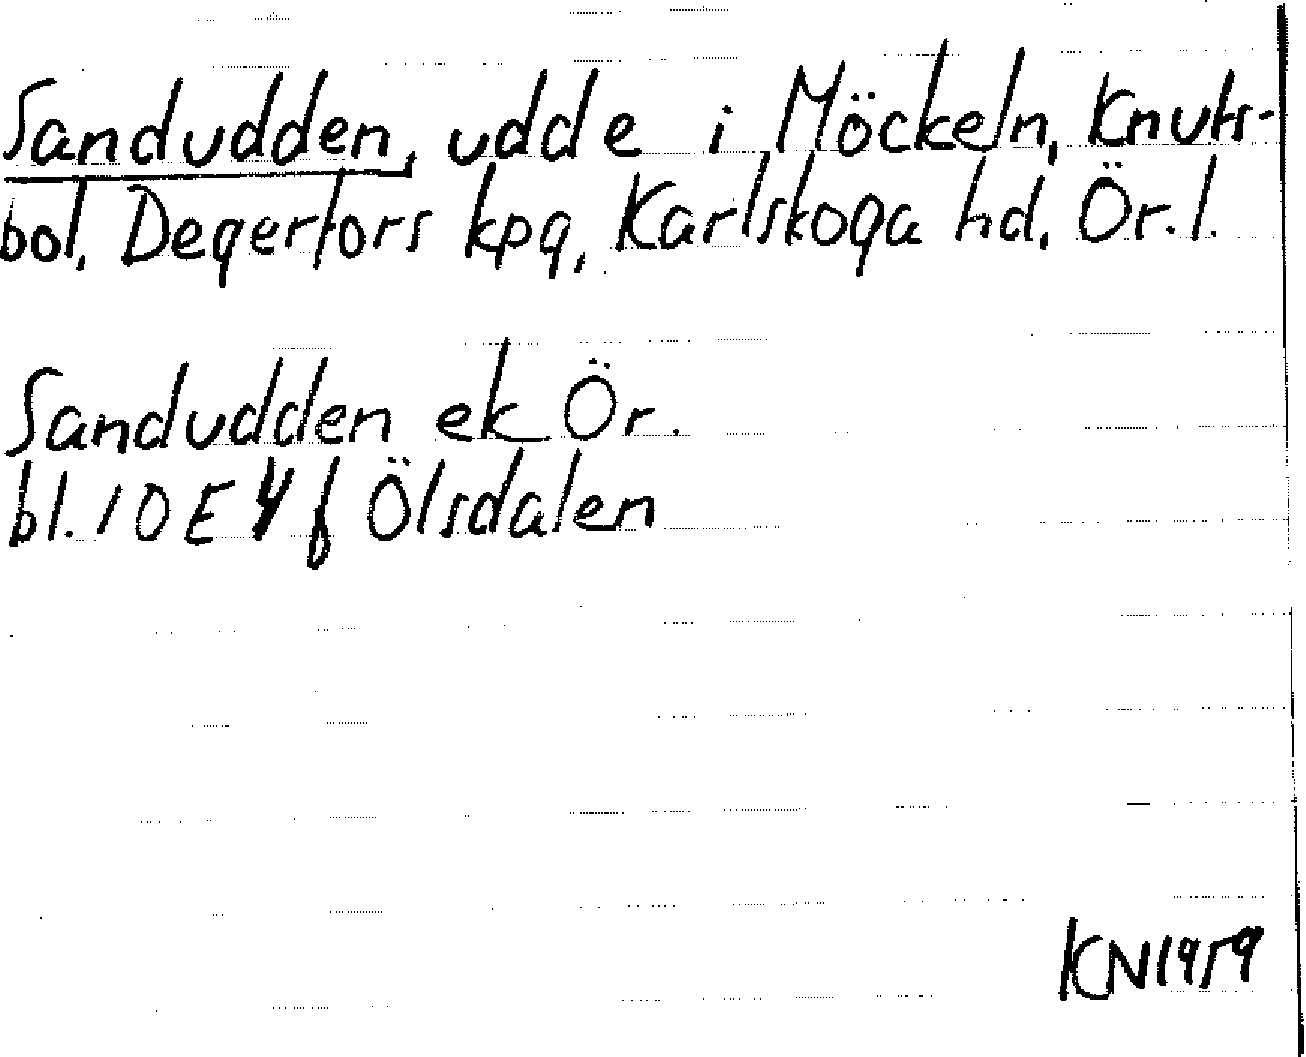 Sandudden, udde i Möckeln, Knuts-
bol, Degerfors kpg, Karlskoga hd, Ör. l.
Sandudden ek Ör.
bl. 10 E 4 f Ölsdalen
KN 1959